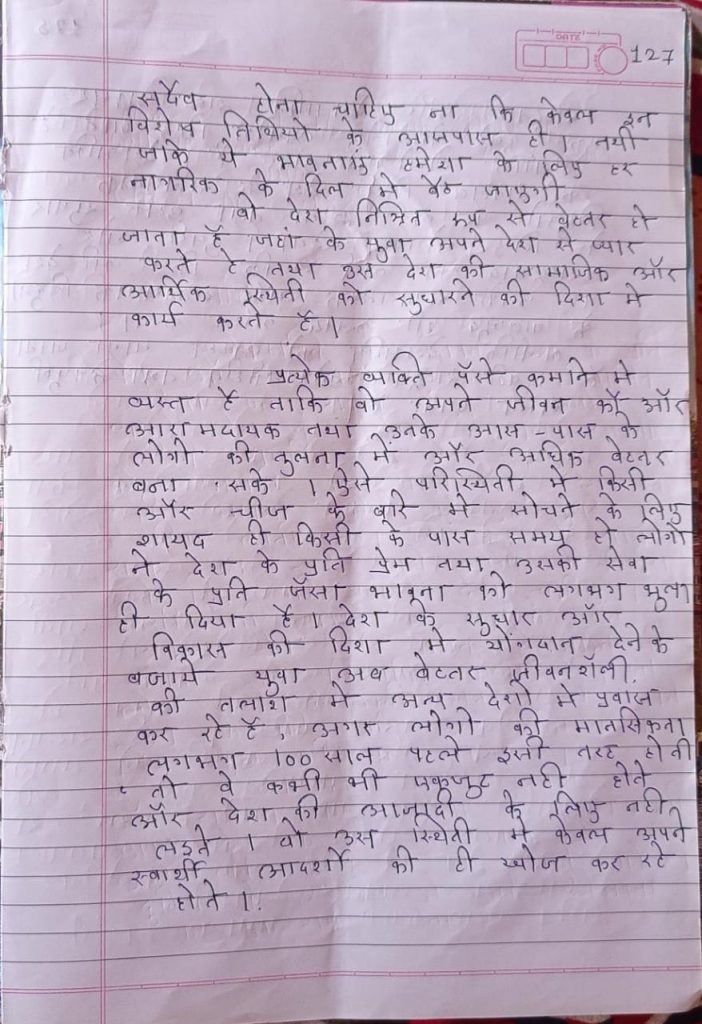 DATE
127
सदैव होना चाहिए ना कि केवल इन
विशेष तिथियो के आसपास ही। तभी
जाके ये भावनाए हमेशा के लिए हर
नागरिक के दिल मे बैठ जाएगी
वो देश निश्चित रूप से बेहतर हो
जाता है जहां के युवा अपने देश से प्यार
करते है तथा उस देश की सामाजिक और
आर्थिक स्थिती को सुधारने की दिशा मे
कार्य करते है।
प्रत्येक व्यक्ति पैसे कमाने मे
व्यस्त है ताकि वो अपने जीवन को और
आरामदायक तथा उनके आस-पास के
लोगो की तुलना में और अधिक बेहतर
बना सके। ऐसे परिस्थिती मे किसी
और चीज के बारे मे सोचने के लिए
शायद ही किसी के पास समय हो लोगो
ने देश के प्रति प्रेम तथा उसकी सेवा
के प्रति जैसा भावना को लगभग भुला
ही दिया है। देश के सुधार और
विकास की दिशा मे योगदान देने के
बजाये युवा अब बेहतर जीवनशैली
की तलाश मे अन्य देशो मे प्रवास
कर रहे है, अगर लोगो की मानसिकता
लगभग 100 साल पहले इसी तरह होती
तो वे कभी भी एकजुट नही होते
और देश की आजादी के लिए नही
लड़ते। वो उस स्थिती मे केवल अपने
स्वार्थी आदर्शो की ही खोज कर रहे
होते।